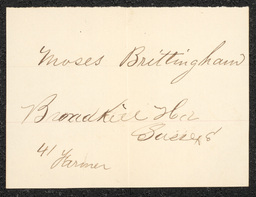 Moses Brittingham
Broadkill Hd
Sussex
41
Farmer